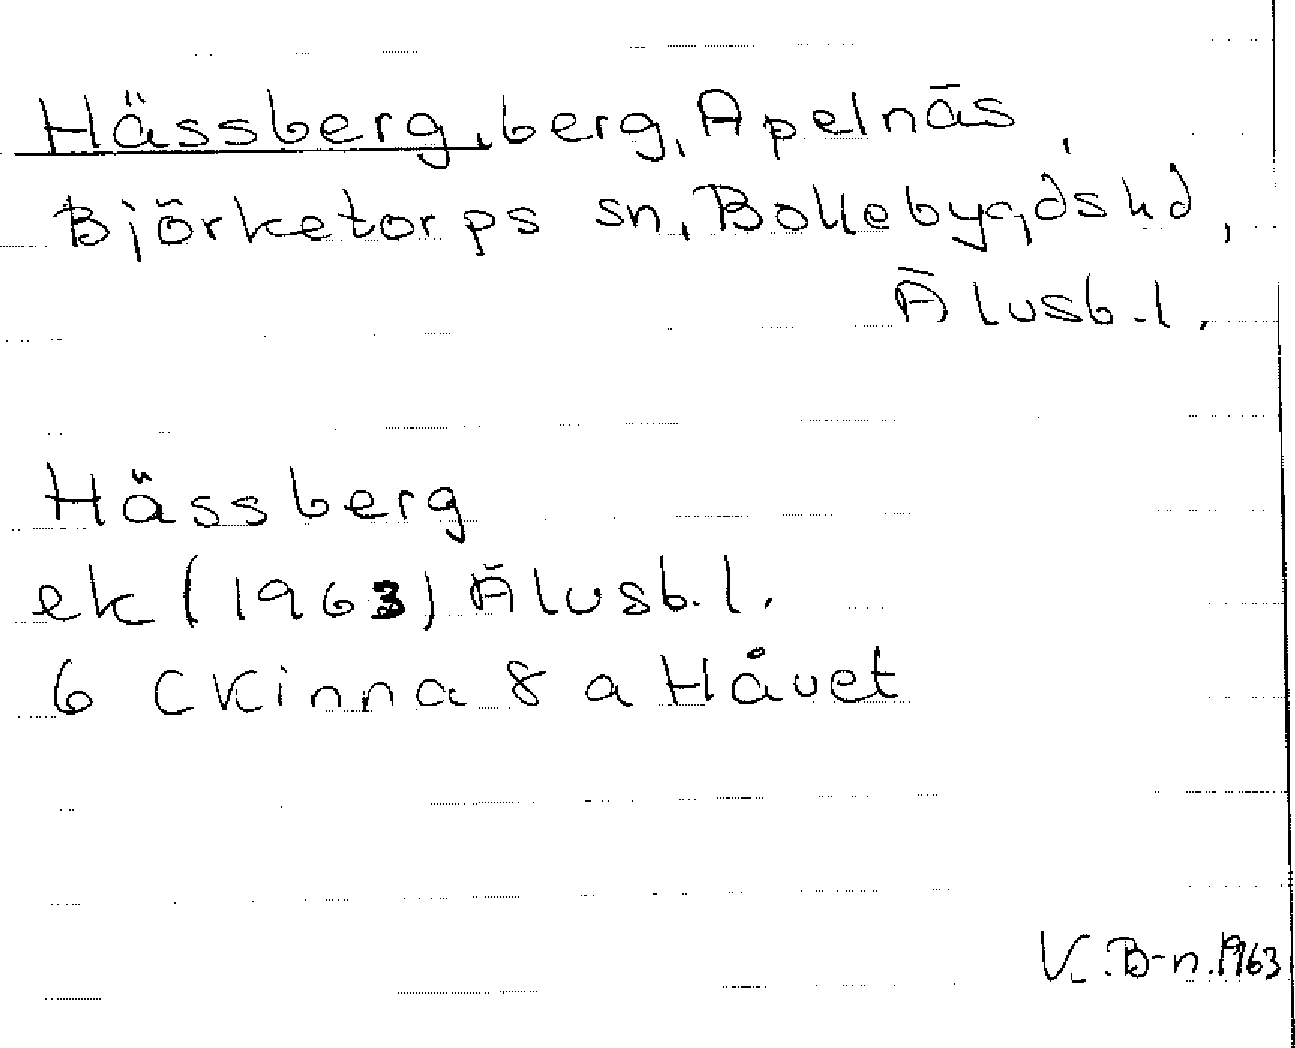 Hässberg, berg, Apelnäs,
Björketorps sn, Bollebygds hd,
Älvsb. l.
Hässberg
ek (1963) Älvsb. l.
6 C Kinna 8 a Håvet
V. B-n. 1963